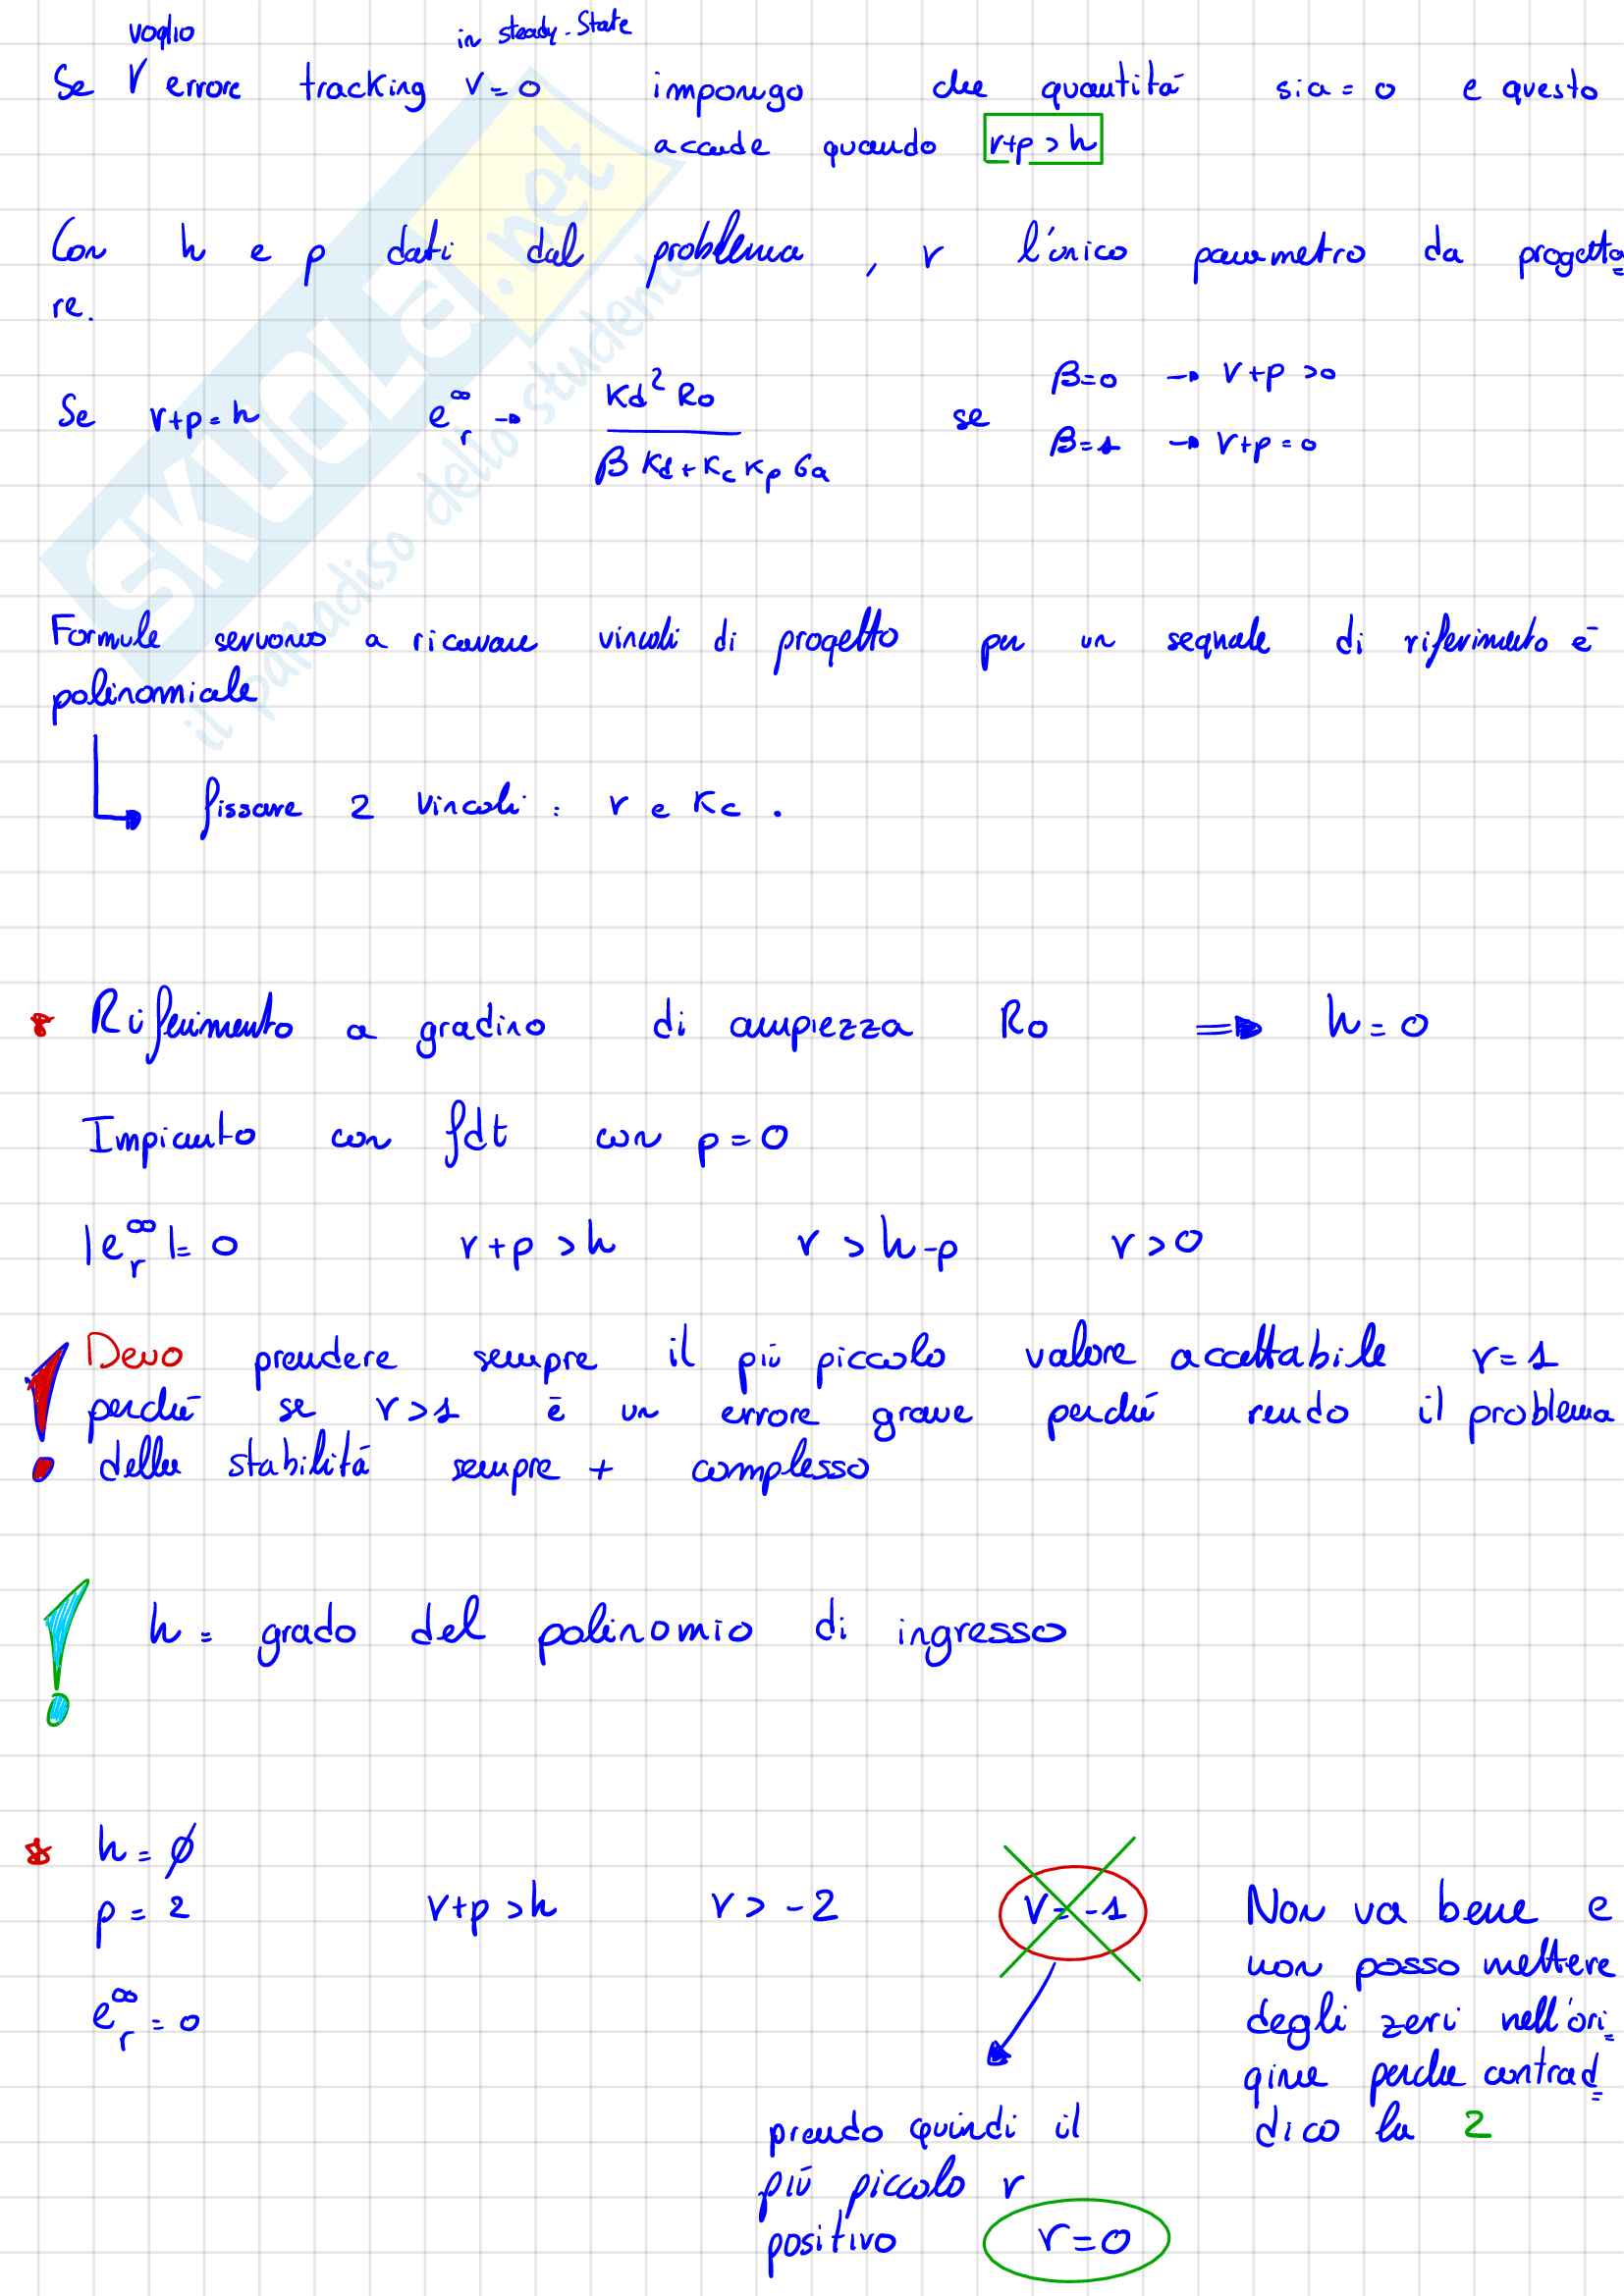 voglio in steady-State
Se V errore tracking r=0 impongo che quantitá sia=0 e questo
accade quando r+p>h
Con h e p dati dal problema, r l'único parametro da progetta=
re.
Se r+p=h e_r^∞ → Kd² Ro / β Kd + Kc Kp Ga se β=0 → r+p>0
β=1 → r+p=0
Formule servono a ricavare vincoli di progetto per un segnale di riferimento é
polinomiale
fissare 2 vincoli: r e Kc.
Riferimento a gradino di ampiezza Ro ⇒ h=0
Impianto con fdt con p=0
|e_r^∞|=0 r+p>h r>h-p r>0
Devo prendere sempre il più piccolo valore accettabile r=1
perché se r>1 é un errore grave perché rendo il problema
della stabilitá sempre + complesso
h= grado del polinomio di ingresso
h=ø
p=2 r+p>h r>-2 r=-1
e_r^∞=0
Non va bene e
non posso mettere
degli zeri nell'ori=
gine perche contrad=
dico la 2
prendo quindi il
più piccolo r
positivo r=0
SKUOLA.net
il paradiso dello studente